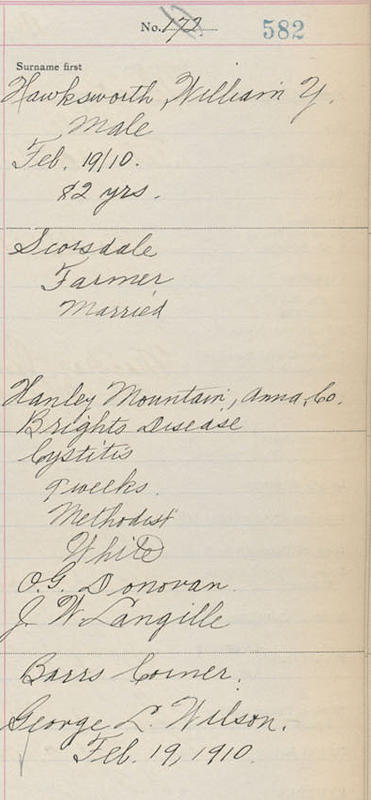 No. 172. 582
Surname first
Hawksworth, William Y.
Male
Feb. 19/10.
82 yrs.
Scorsdale
Farmer
Married
Hanley Mountain, Anna, Co.
Brights Disease
Cystitis
9 weeks.
Methodist
White
O.G. Donovan.
J. W Langille
Barrs Corner.
George L. Wilson.
Feb. 19, 1910.